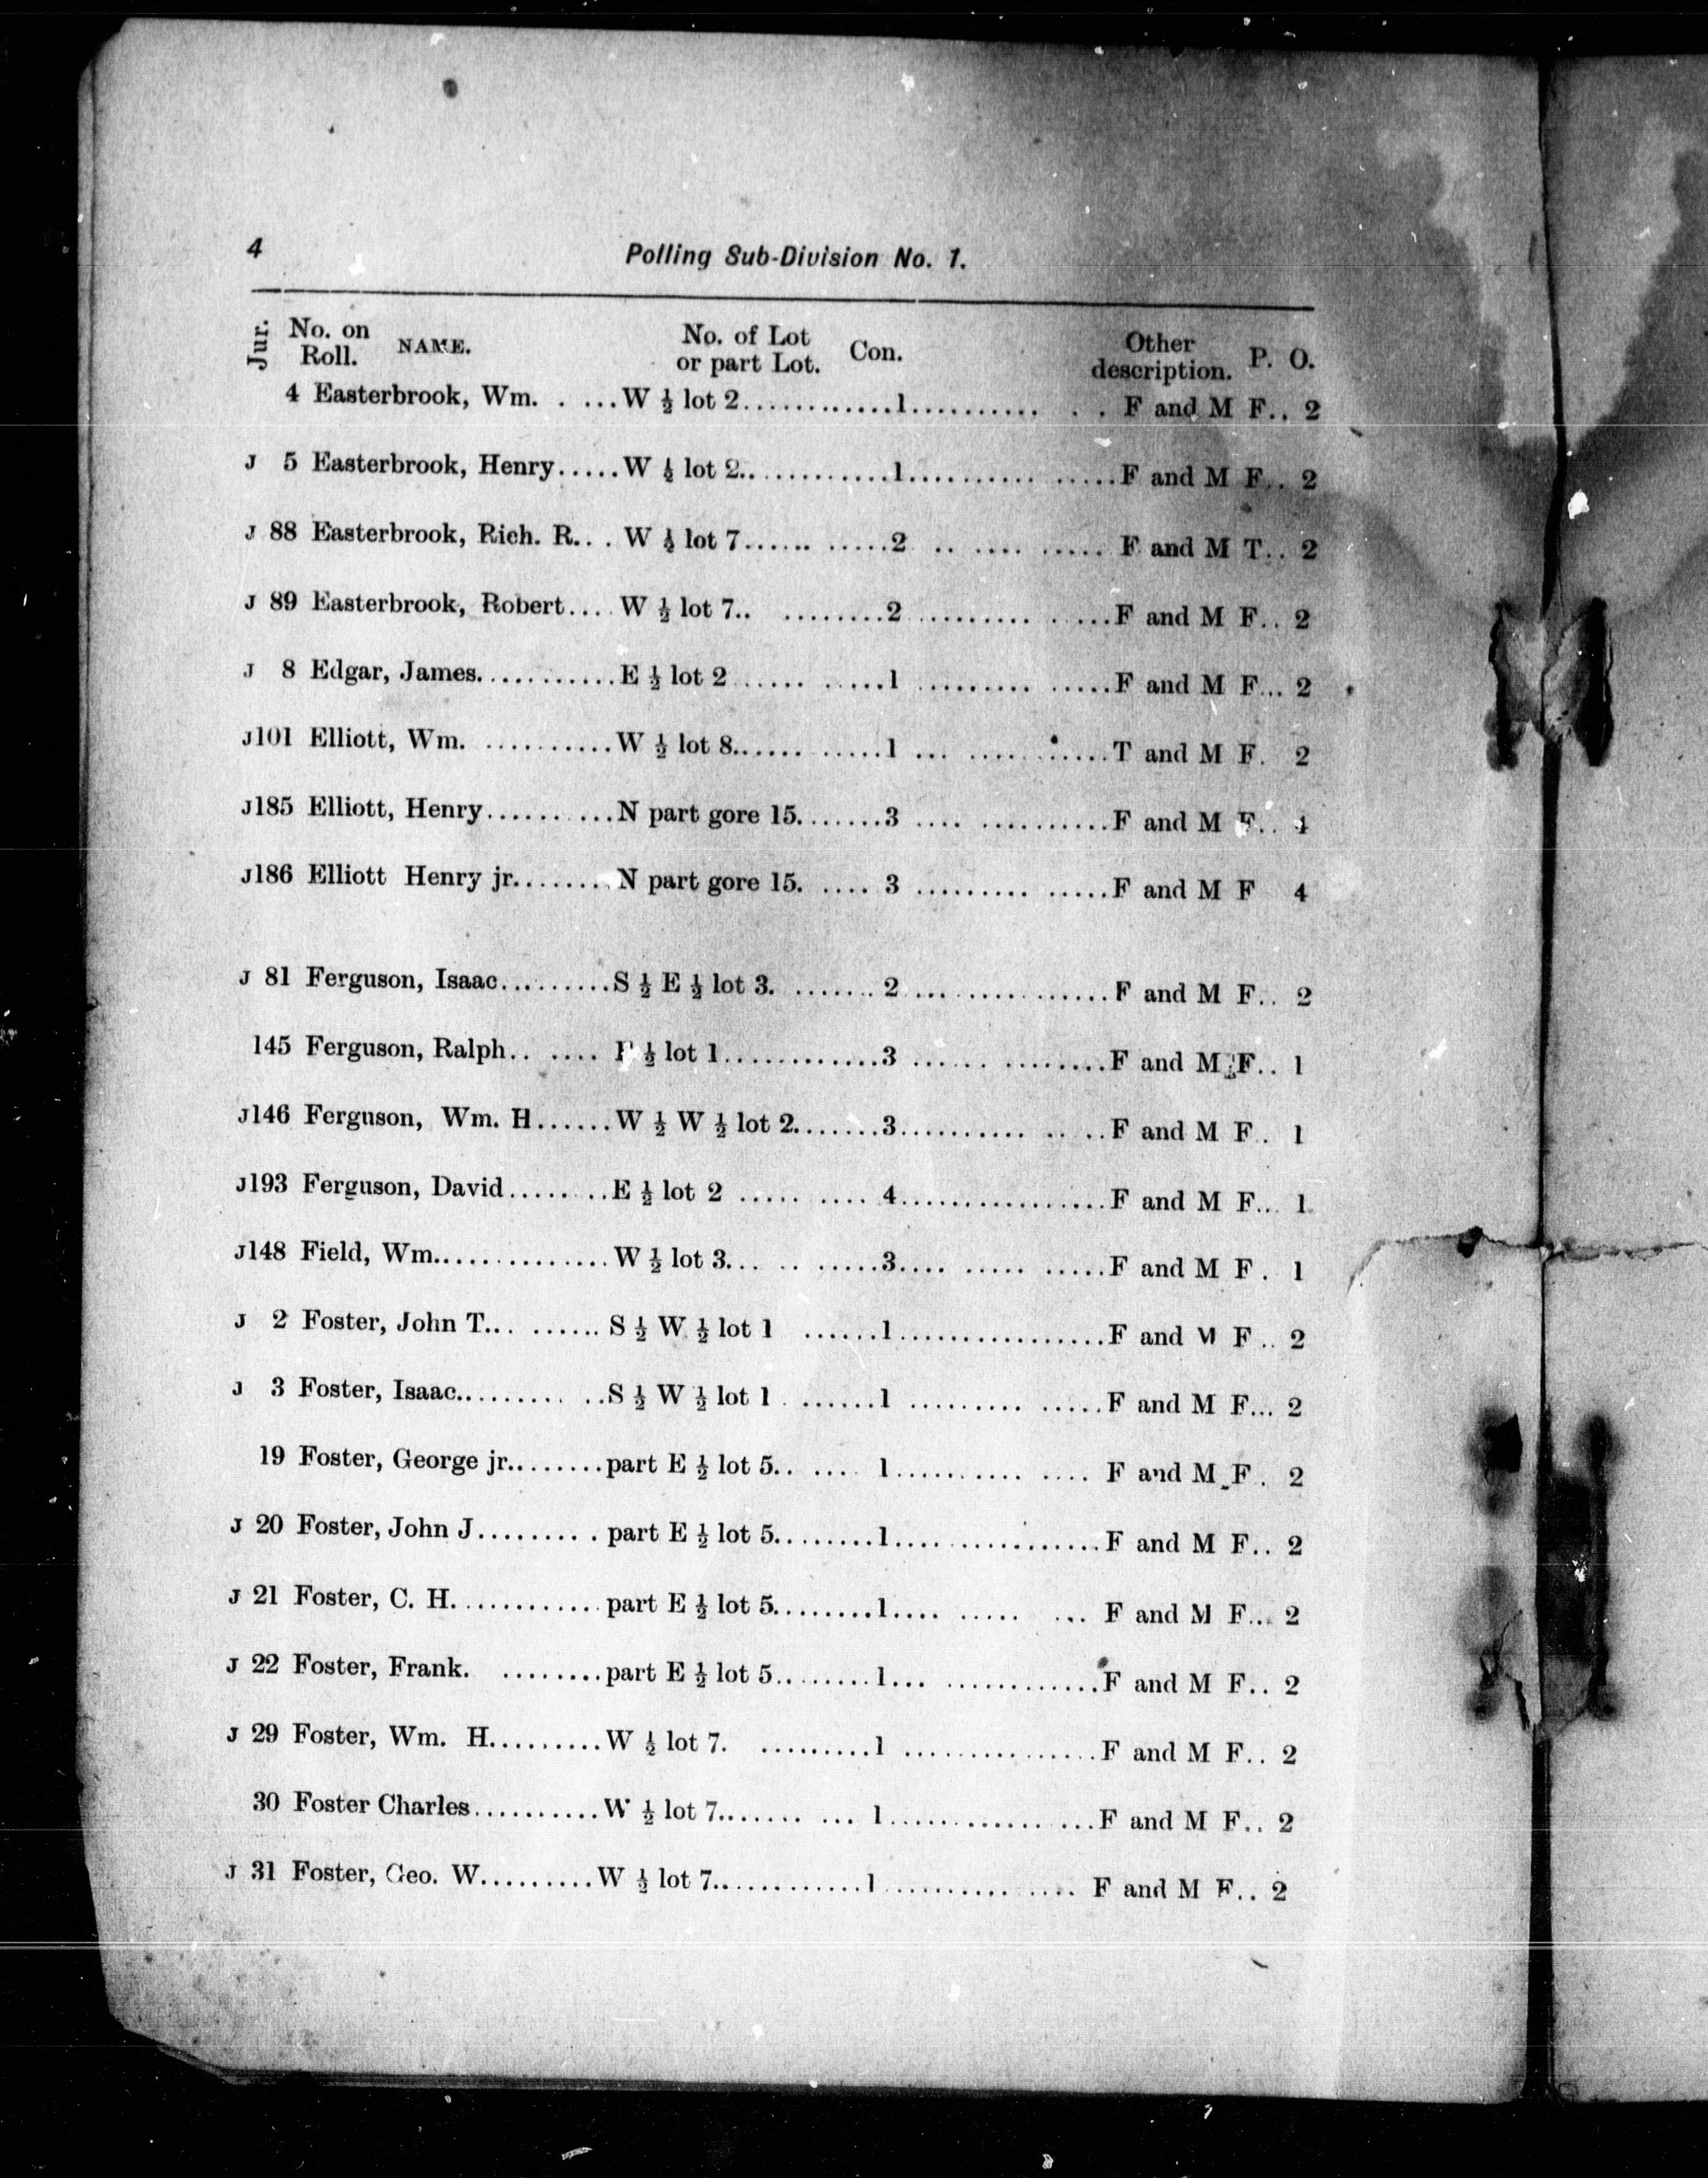 4 Polling Sub-Division No. 1.
Jur. No. on Roll. NAME. No. of Lot or part Lot. Con. Other description. P. O.
4 Easterbrook, Wm. . ...W ½ lot 2.............1.......... . . F and M F.. 2
J 5 Easterbrook, Henry.....W ½ lot 2..............1.......... .....F and M F.. 2
J 88 Easterbrook, Rich. R.. . W ½ lot 7...... .....2 .. .... ..... F and M T.. 2
J 89 Easterbrook, Robert.... W ½ lot 7.. ........2 ......... .....F and M F.. 2
J 8 Edgar, James............E ½ lot 2 ...... .....1 ......... .....F and M F... 2
J101 Elliott, Wm. ..........W ½ lot 8....... .....1 ... .........T and M F. 2
J185 Elliott, Henry..........N part gore 15.......3 .... ..........F and M F.. 4
J186 Elliott Henry jr........N part gore 15. .... 3 ......... .....F and M F 4
J 81 Ferguson, Isaac.........S ½ E ½ lot 3. .......2 ... ...........F and M F.. 2
145 Ferguson, Ralph.. .... ½ lot 1............3 ...... ........F and M F.. 1
J146 Ferguson, Wm. H......W ½ W ½ lot 2.......3.......... .. ..F and M F.. 1
J193 Ferguson, David........E ½ lot 2 ..... .... 4.................F and M F... 1
J148 Field, Wm...............W ½ lot 3... .. .....3.... ..... .....F and M F. 1
J 2 Foster, John T... ...... S ½ W ½ lot 1 ......1.................F and M F.. 2
J 3 Foster, Isaac.......... ..S ½ W ½ lot 1 . ......1 ......... .....F and M F... 2
19 Foster, George jr........part E ½ lot 5.. .... 1.......... .... F and M F. 2
J 20 Foster, John J.......... part E ½ lot 5.........1.................F and M F.. 2
J 21 Foster, C. H............. part E ½ lot 5.........1.... ..... ... F and M F... 2
J 22 Foster, Frank. ........part E ½ lot 5.........1... .............F and M F.. 2
J 29 Foster, Wm. H.........W ½ lot 7. .........1 ................F and M F.. 2
30 Foster Charles..........W ½ lot 7....... ... 1............ ...F and M F.. 2
J 31 Foster, Geo. W.........W ½ lot 7.............1 .......... .... F and M F.. 2